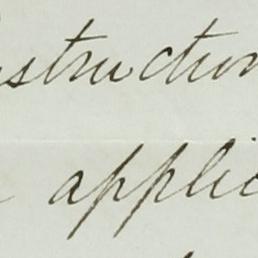 struction
applic